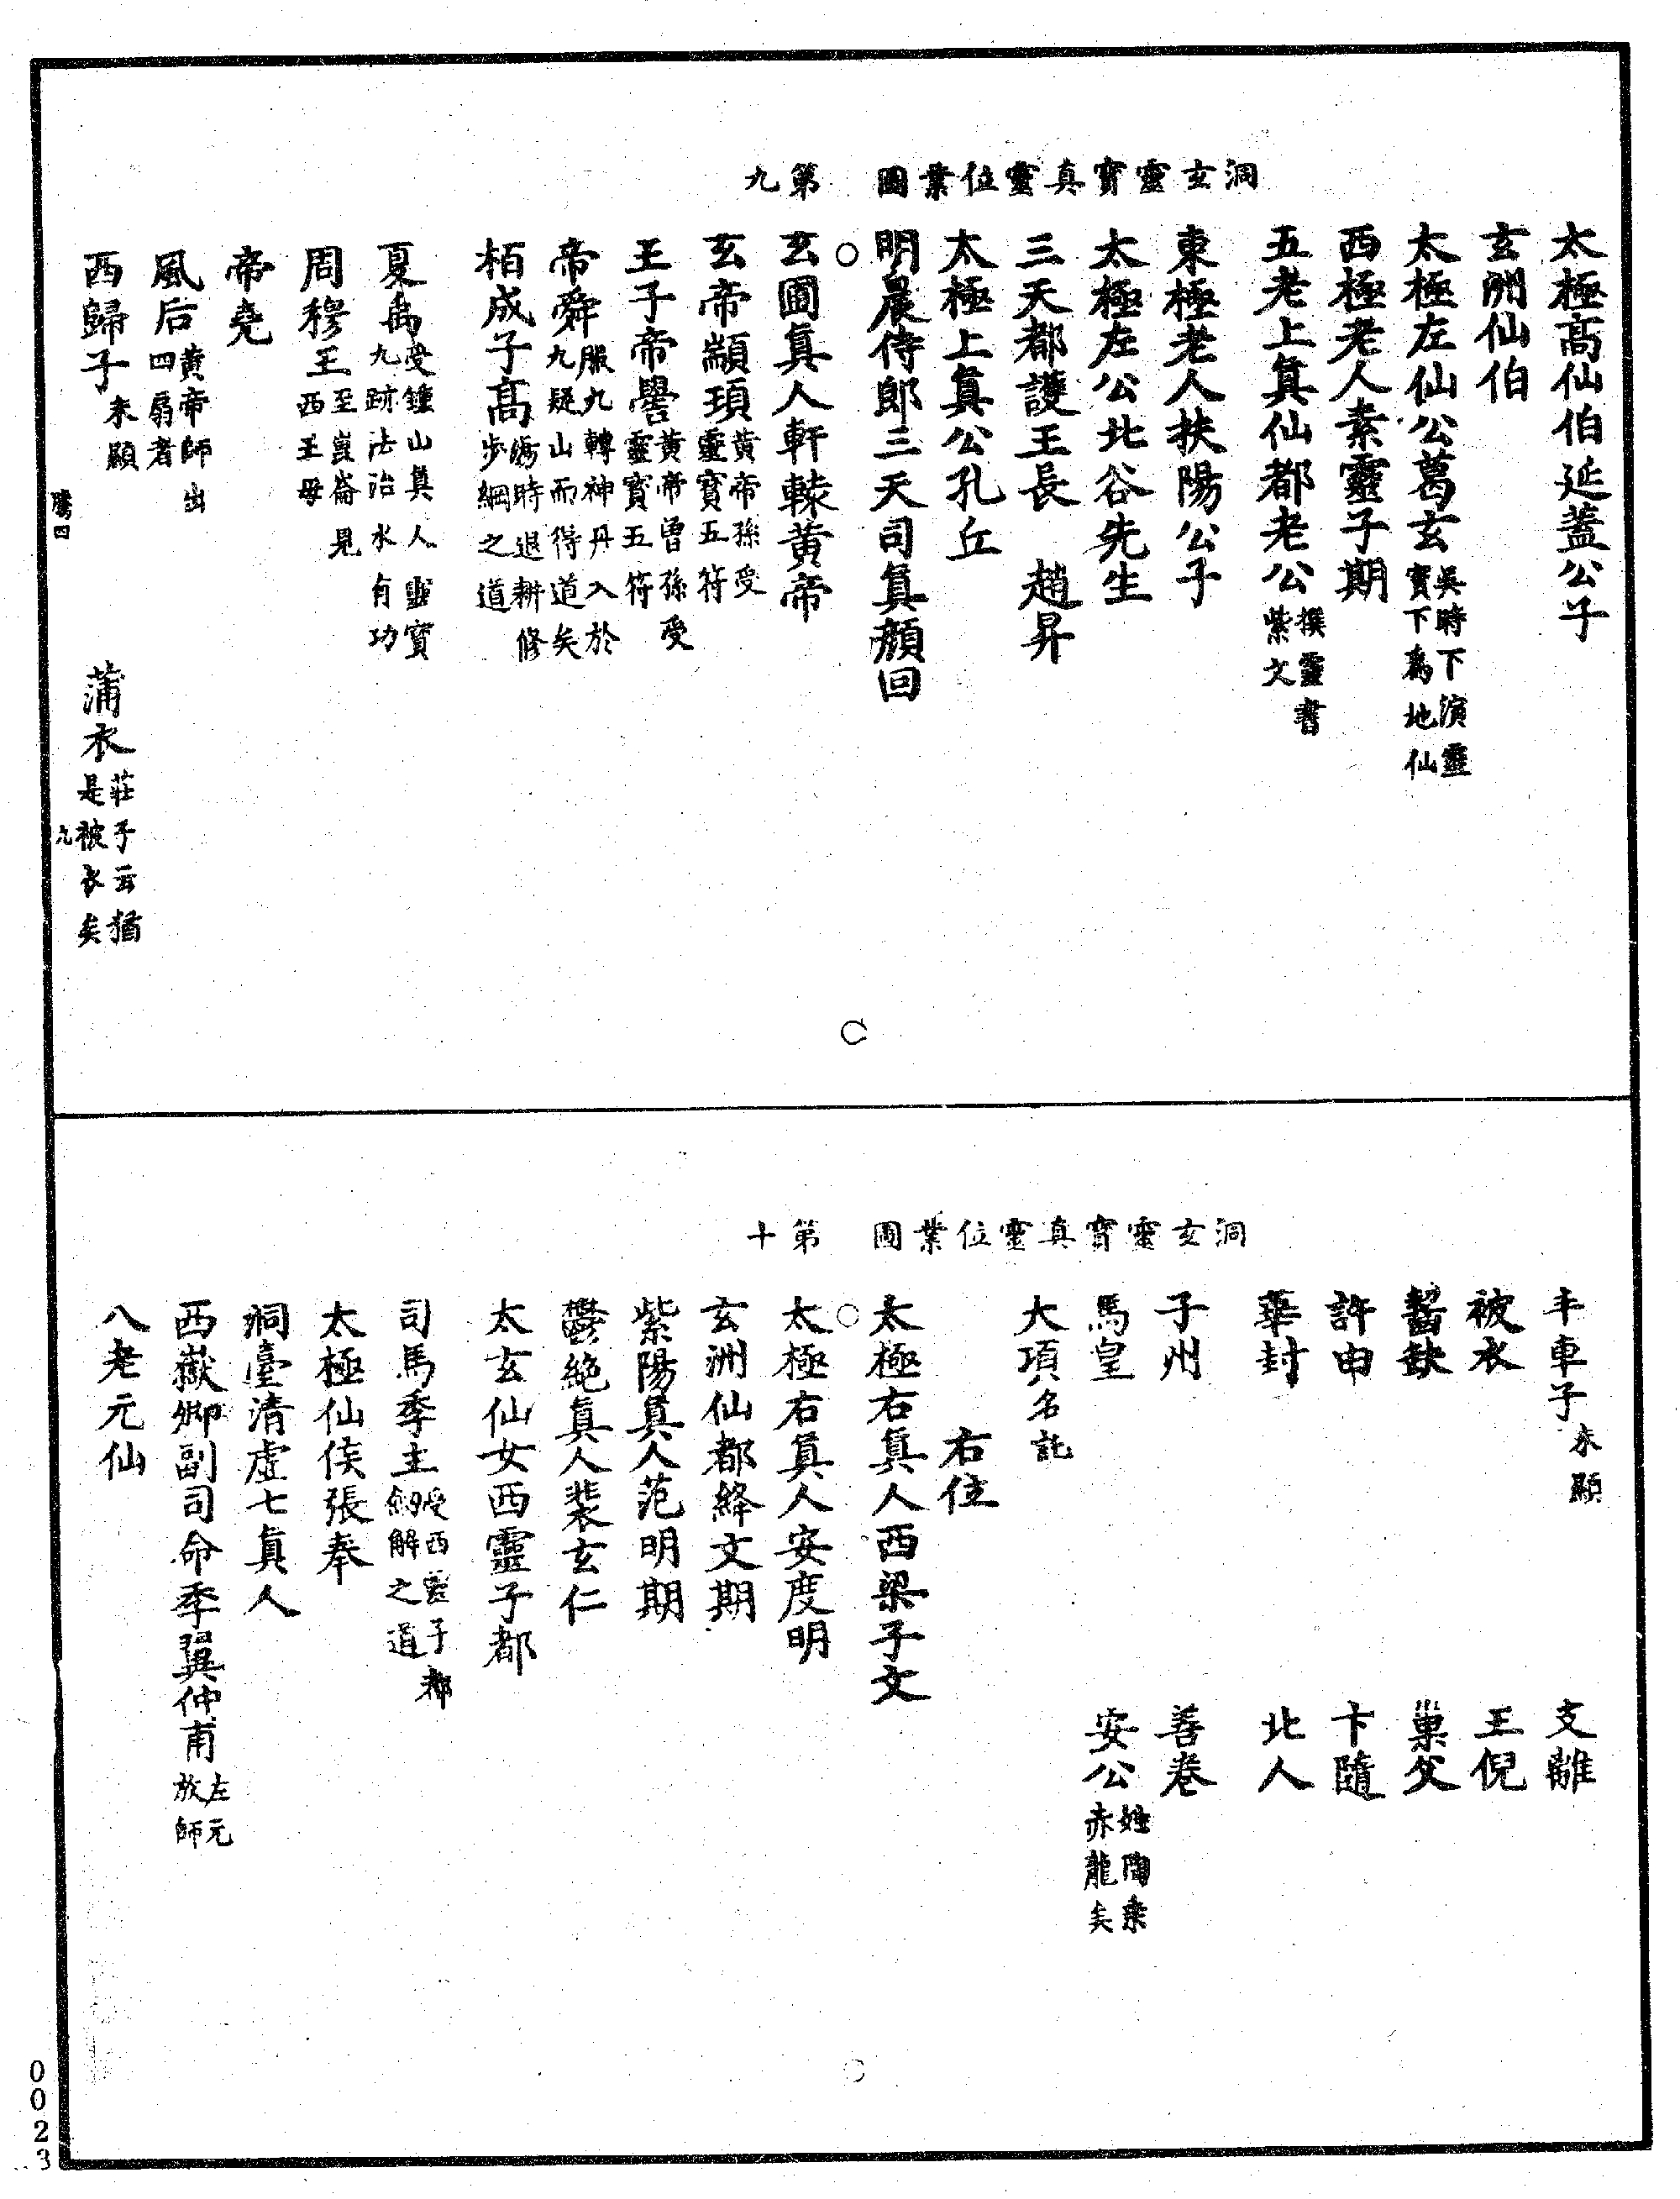 洞玄靈寶真靈位業圖　第九
太極高仙伯延蓋公子
玄洲仙伯
太極左仙公葛玄吳時下演靈寶下為地仙
西極老人素靈子期
五老上真仙都老公撰靈書紫文
東極老人扶陽公子
太極左公北谷先生
三天都護王長　趙昇
太極上真公孔丘
明晨侍郎三天司真顏回
玄圃真人軒轅黃帝
玄帝顓頊黃帝孫受靈寶五符
王子帝嚳黃帝曾孫受靈寶五符
帝舜服九轉神丹入於九疑山而得道矣
栢成子高禹時退耕修步綱之道
夏禹受鍾山真人靈寶九跡法治水有功
周穆王至崑崙見西王母
帝堯
風后黃帝師出四扇者
西歸子未顯　蒲衣莊子云猶是被衣矣
鷹四　九
洞玄靈寶真靈位業圖　第十
丰車子未顯　支離
被衣　王倪
齧缺　巢父
許由　卞隨
華封　北人
子州　善卷
馬皇　安公姓陶乘赤龍矣
大項名託
右位
太極右真人西梁子文
太極右真人安度明
玄洲仙都絳文期
紫陽真人范明期
鬱絕真人裴玄仁
太玄仙女西靈子都
司馬季主受西靈子都劒解之道
太極仙侯張奉
洞臺清虛七真人
西嶽卿副司命季翼仲甫左元放師
八老元仙
0023